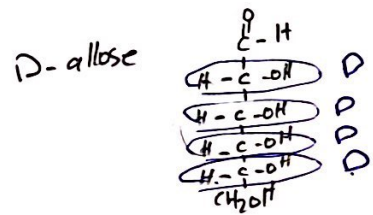 O
C - H
D- allose
H - C - OH D
H - C - OH D
H - C - OH D
H - C - OH D
CH2OH